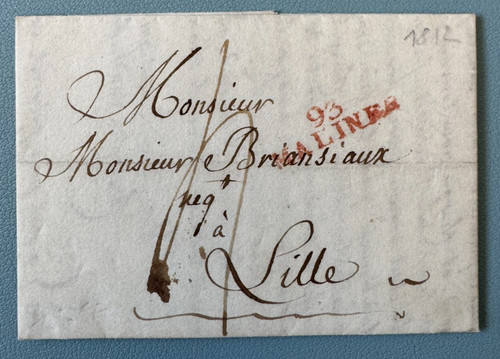 1812
Monsieur
93
MALINES
Monsieur Briansiaux
neg
à
Lille